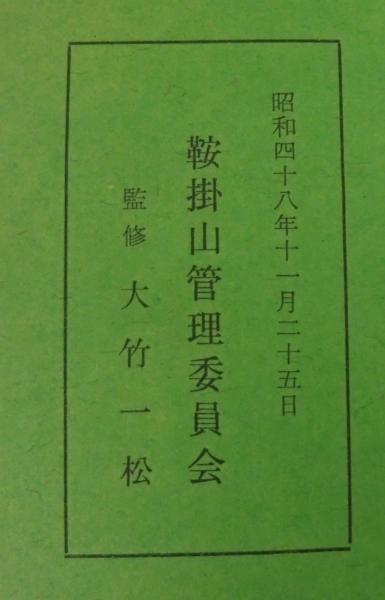 昭和四十八年十一月二十五日
鞍掛山管理委員会
監修 大竹一松